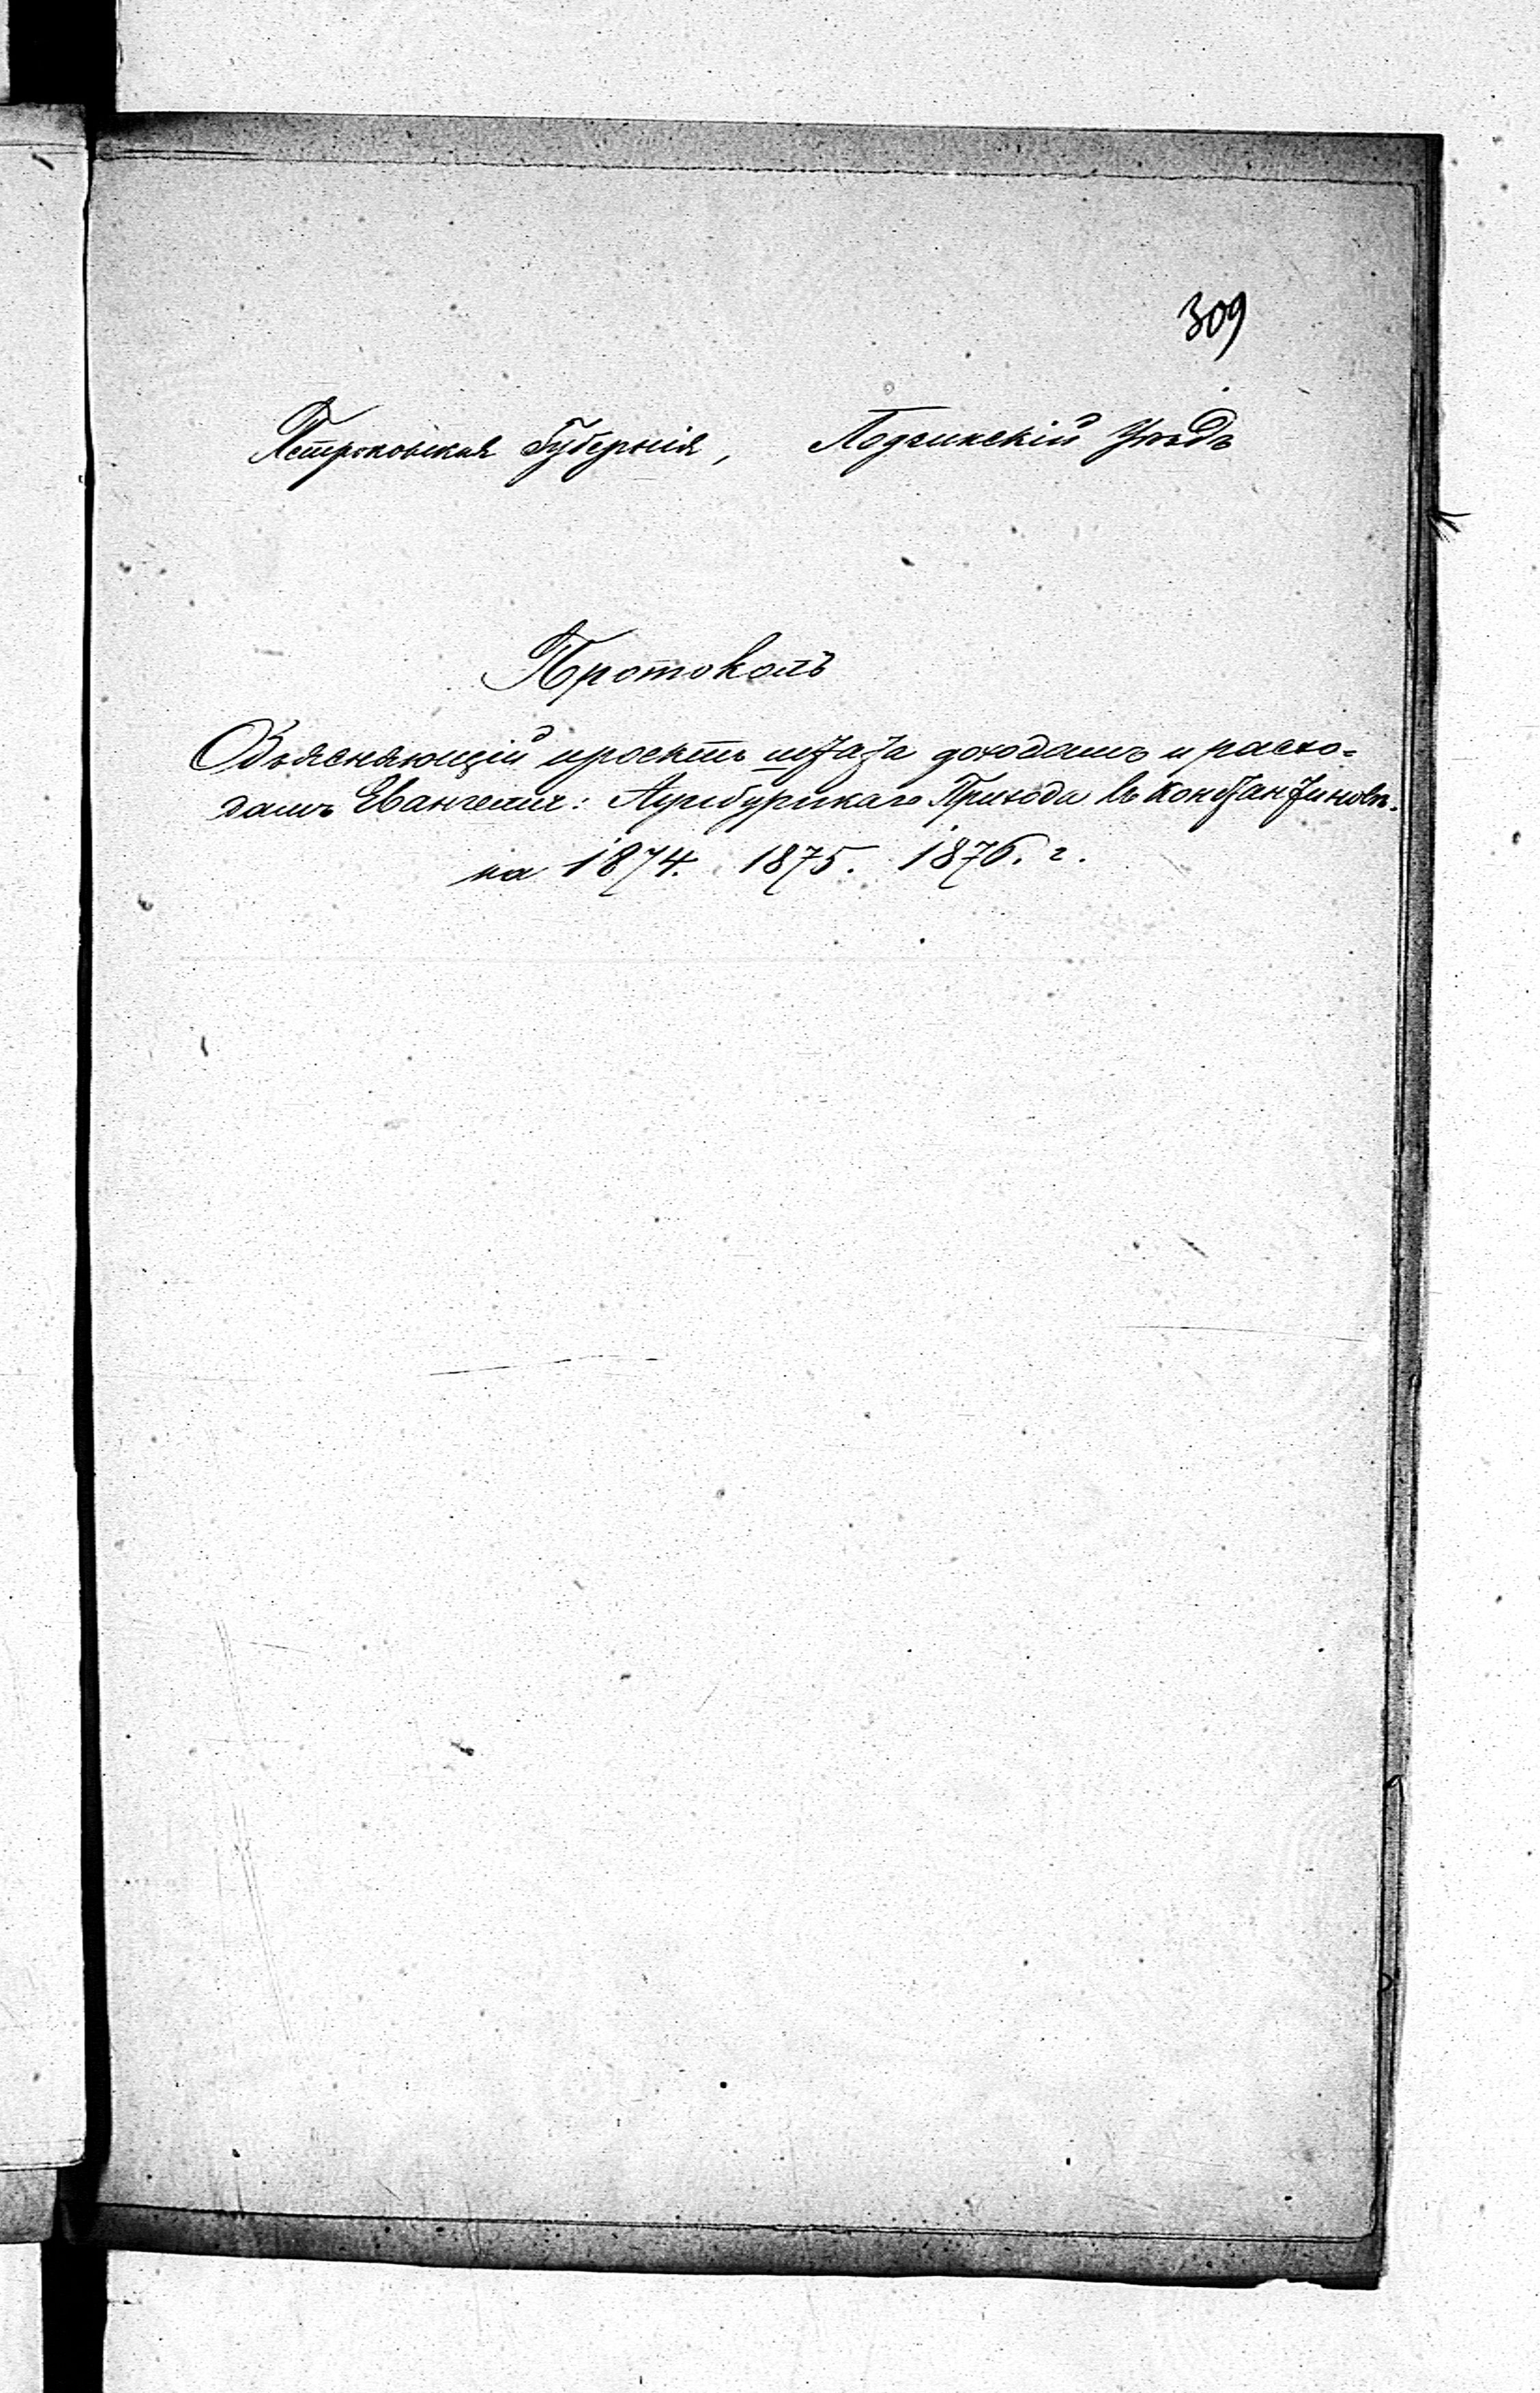 309
Петроковская Губернія, Лодзинскій Уѣздъ
Протоколъ
Объясняющій проектъ штата доходамъ и расхо=
дамъ Евангелич: Аугсбургскаго Прихода въ Константиновѣ.
на 1874. 1875. 1876. г.